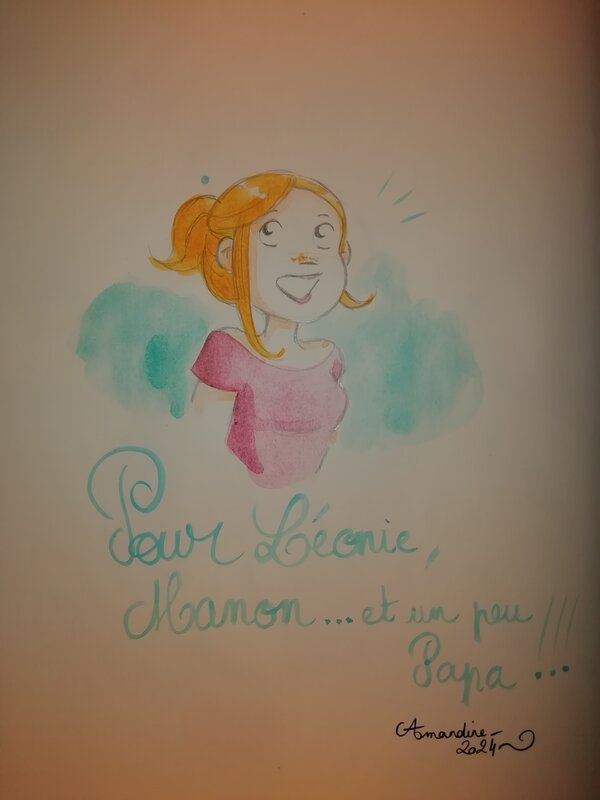 Pour Léonie,
Manon... et un peu
Papa !!!
Amandine
2024